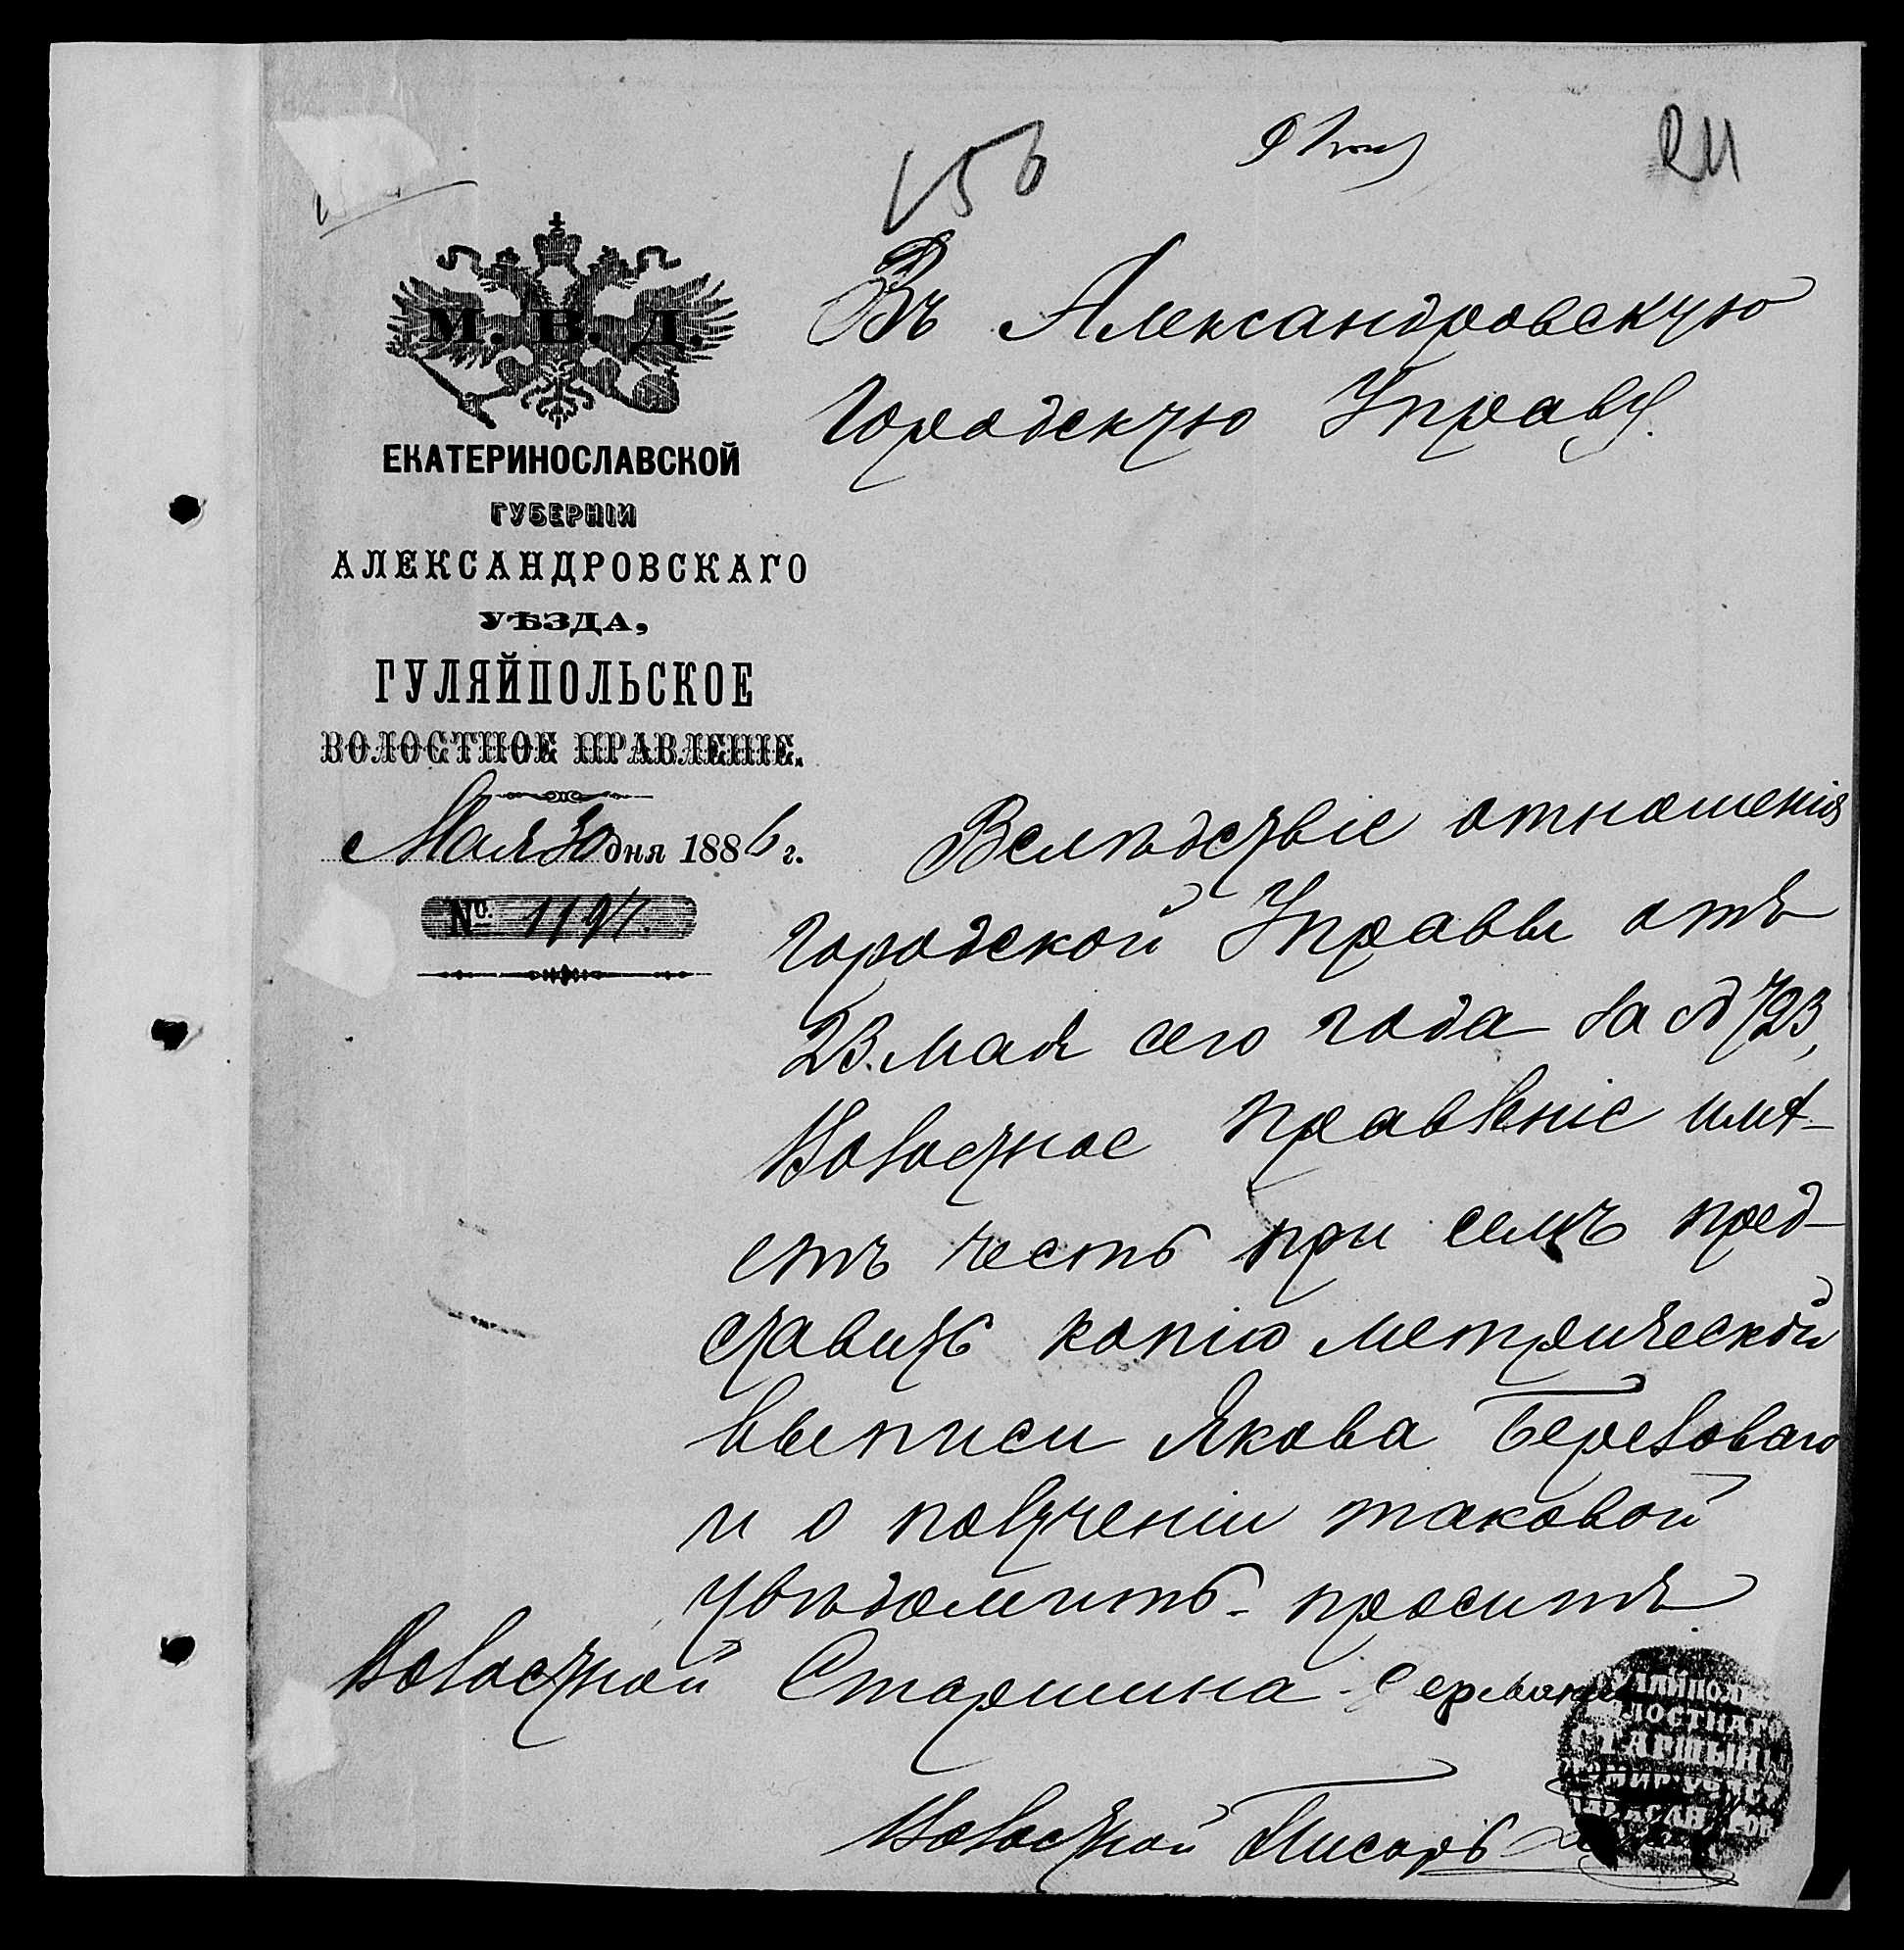 156
211
М. В. Д.
ЕКАТЕРИНОСЛАВСКОЙ
ГУБЕРНІИ
АЛЕКСАНДРОВСКАГО
УѢЗДА,
ГУЛЯЙПОЛЬСКОЕ
ВОЛОСТНОЕ ПРАВЛЕНІЕ.
Мая 30 дня 1886 г.
№ 1197.
Въ Александровскую
Городскую Управу.
Вслѣдствіе отношенія
Городской Управы отъ
23. мая сего года за № 723,
Волостное правленіе имѣ-
етъ честь при семъ пред-
ставить копію метрической
выписи Якова Березоваго
и о полученіи таковой
увѣдомить - проситъ
Волостной Старшина
Волостной Писарь
ВОЛОСТНАГО
СТАРШИНЫ